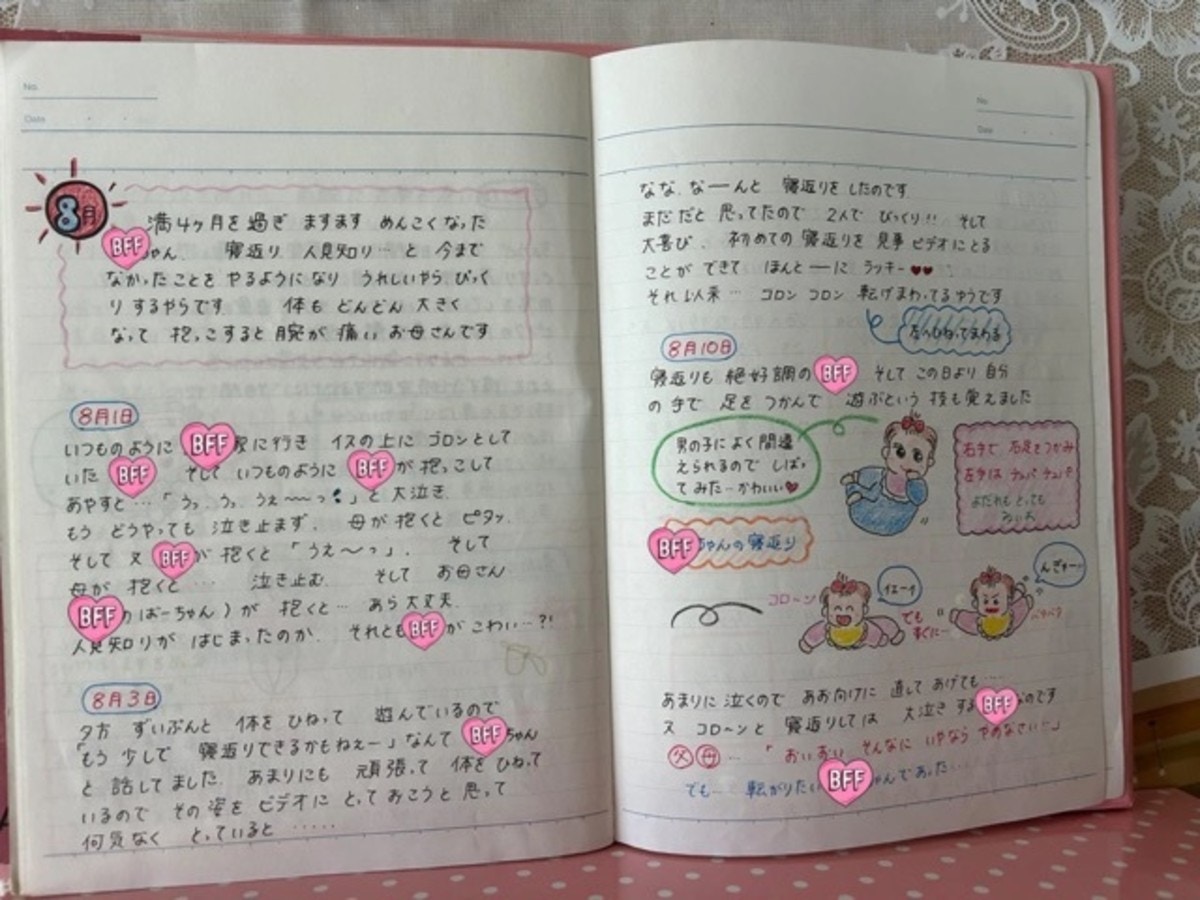 No.
Date
8月
満4ヶ月を過ぎ ますます めんこくなった
BFFちゃん、 寝返り、人見知り…と 今まで
なかったことを やるようになり うれしいやら びっく
りするやらです 体も どんどん 大きく
なって 抱っこすると 腕が 痛い お母さんです
8月1日
いつものように BFF家に行き イスの上に ゴロンとして
いた BFF そして いつものように BFFが抱っこして
あやすと…「うっ、うっ、うぇ〜〜っ」と 大泣き、
もう どうやっても 泣き止まず、 母が抱くと ピタッ、
そして 又 BFFが 抱くと「うえ〜っ」、 そして
母が 抱くと…… 泣き止む、 そして お母さん
BFFのばーちゃん)が 抱くと… あら大丈夫、
人見知りが はじまったのか、 それともBFFがこわい…?!
8月3日
夕方 ずいぶんと 体を ひねって 遊んでいるので
「もう 少しで 寝返りできるかもねぇー」なんて BFFちゃん
と 話してました、 あまりにも 頑張って 体を ひねって
いるので その姿を ビデオに とっておこうと 思って
何気なく とっていると ……
No.
Date
なな、なーんと 寝返りを したのです
まだだと 思ってたので 2人で びっくり!! そして
大喜び、 初めての 寝返りを 見事 ビデオにとる
ことが できて ほんとーに ラッキー♥♥
それ以来… コロン コロン 転げまわってるゆうです
左へひねってまわる
8月10日
寝返りも 絶好調の BFF そして この日より 自分
の手で 足を つかんで 遊ぶという 技も覚えました
男の子によく間違
えられるので しばっ
てみた…かわいい♥
右手で 右足をつかみ
左手は チュパチュパ
よだれも とっても
BFFちゃんの寝返り
コローン
イエーイ
でも
すぐに…
んぎゃーっ
バタバタ
あまりに 泣くので あお向けに 直して あげても…
又 コローンと 寝返りしては 大泣き するBFFなのです
父 母 …「おいおい そんなに いやなら やめなさい…」
でも… 転がりたいBFFちゃんであった…